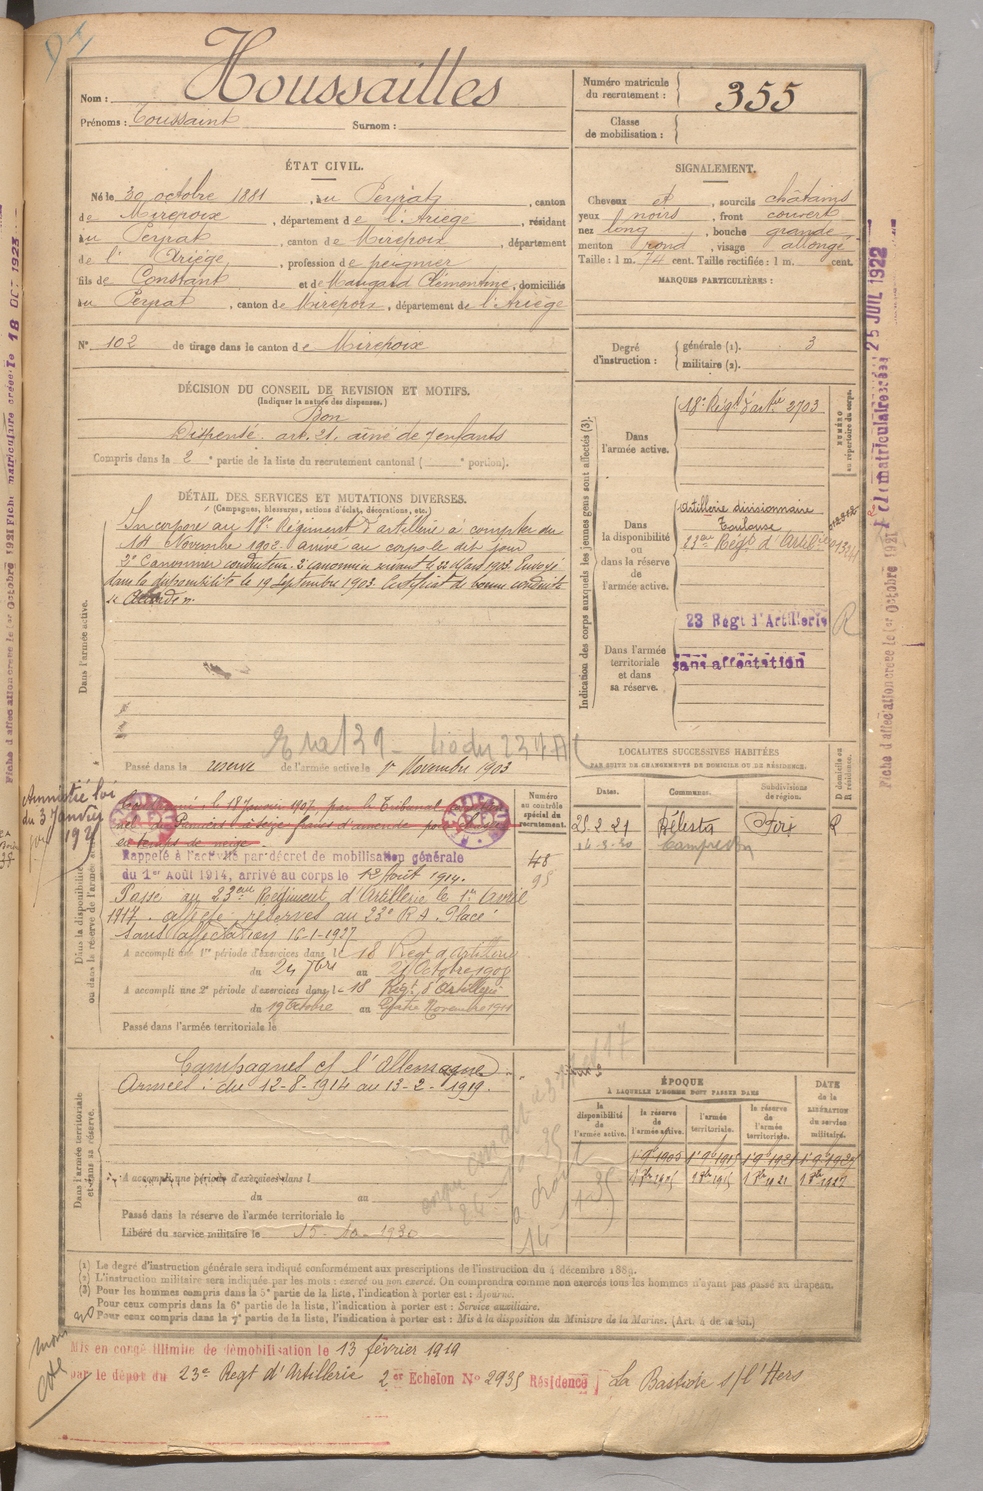 Nom : Houssailles
Prénoms : Toussaint Surnom :
Numéro matricule du recrutement : 355
Classe de mobilisation :
ÉTAT CIVIL.
Né le 30 octobre 1881, au Peyrat, canton
de Mirepoix, département de l'Ariège, résidant
au Peyrat, canton de Mirepoix, département
de l'Ariège, profession de peignier
fils de Constant et de Maugard Clémentine, domiciliés
au Peyrat, canton de Mirepoix, département de l'Ariège
N° 102 de tirage dans le canton de Mirepoix
SIGNALEMENT.
Cheveux et, sourcils châtains
yeux noirs, front couvert
nez long, bouche grande
menton rond, visage allongé
Taille : 1 m. 74 cent. Taille rectifiée : 1 m. cent.
MARQUES PARTICULIÈRES :
Degré d'instruction : générale (1). 3
militaire (2).
DÉCISION DU CONSEIL DE REVISION ET MOTIFS.
(Indiquer la nature des dispenses.)
Bon
Dispensé art. 21, aîné de 7 enfants
Compris dans la 2e partie de la liste du recrutement cantonal ( e portion).
DÉTAIL DES SERVICES ET MUTATIONS DIVERSES.
(Campagnes, blessures, actions d'éclat, décorations, etc.)
Dans l'armée active.
Incorporé au 18e Régiment d'artillerie à compter du
14 Novembre 1902. arrivé au corps le dit jour
2e Canonnier conducteur. 2e canonnier servant le 22 Mars 1903. Envoyé
dans la disponibilité le 19 Septembre 1903. Certificat de bonne conduite
Accordé.
Passé dans la réserve de l'armée active le 1er Novembre 1903
Indication des corps auxquels les jeunes gens sont affectés (3).
Dans l'armée active.
18e Régt d'artie 2703
NUMÉRO au répertoire du corps.
Dans la disponibilité ou dans la réserve de l'armée active.
Artillerie divisionnaire
Toulouse
23e Régt d'Artie
Dans l'armée territoriale et dans sa réserve.
23 Regt d'Artillerie R
sans affectation
LOCALITÉS SUCCESSIVES HABITÉES
PAR SUITE DE CHANGEMENTS DE DOMICILE OU DE RÉSIDENCE.
Dates. Communes. Subdivisions de région. D domicile ou R résidence.
25 2 21 Bélesta Foix R
Numéro au contrôle spécial du recrutement.
48
95
Amnistié loi
du 3 Janvier
1925
Dans la disponibilité ou dans la réserve de l'armée active.
Condamné le 18 Janvier 1907 par le Tribunal
de Pamiers à seize francs d'amende pour
en temps de neige
Rappelé à l'activité par décret de mobilisation générale
du 1er Août 1914, arrivé au corps le 12 Août 1914.
Passé au 23eme Régiment d'Artillerie le 1er Avril
1917. affecté réserves au 23e R.A. Placé
sans affectation 16-1-1927
A accompli une 1re période d'exercices dans le 18 Régt d'Artillerie
du 24 7bre au 21 Octobre 1908
A accompli une 2e période d'exercices dans le 18 Régt d'Artillerie
du 19 Octobre au Novembre 1911
Passé dans l'armée territoriale le
Dans l'armée territoriale et dans sa réserve.
Campagnes c/ l'Allemagne
Armées : du 12-8-1914 au 13-2-1919.
A accompli une période d'exercices dans l
du au
Passé dans la réserve de l'armée territoriale le
Libéré du service militaire le 15-10-1930
ÉPOQUE
À LAQUELLE L'HOMME DOIT PASSER DANS
la disponibilité de l'armée active. la réserve de l'armée active. l'armée territoriale. la réserve de l'armée territoriale.
DATE de la LIBÉRATION du service militaire.
(1) Le degré d'instruction générale sera indiqué conformément aux prescriptions de l'instruction du 4 décembre 1889.
(2) L'instruction militaire sera indiquée par les mots : exercé ou non exercé. On comprendra comme non exercés tous les hommes n'ayant pas passé au drapeau.
(3) Pour les hommes compris dans la 5e partie de la liste, l'indication à porter est : Ajourné.
Pour ceux compris dans la 6e partie de la liste, l'indication à porter est : Service auxiliaire.
Pour ceux compris dans la 7e partie de la liste, l'indication à porter est : Mis à la disposition du Ministre de la Marine. (Art. 4 de la loi.)
Mis en congé illimité de démobilisation le 13 février 1919
par le dépôt du 23e Regt d'Artillerie 2er Echelon No 2935 Résidence La Bastide s/ l'Hers
25 JUIL 1922